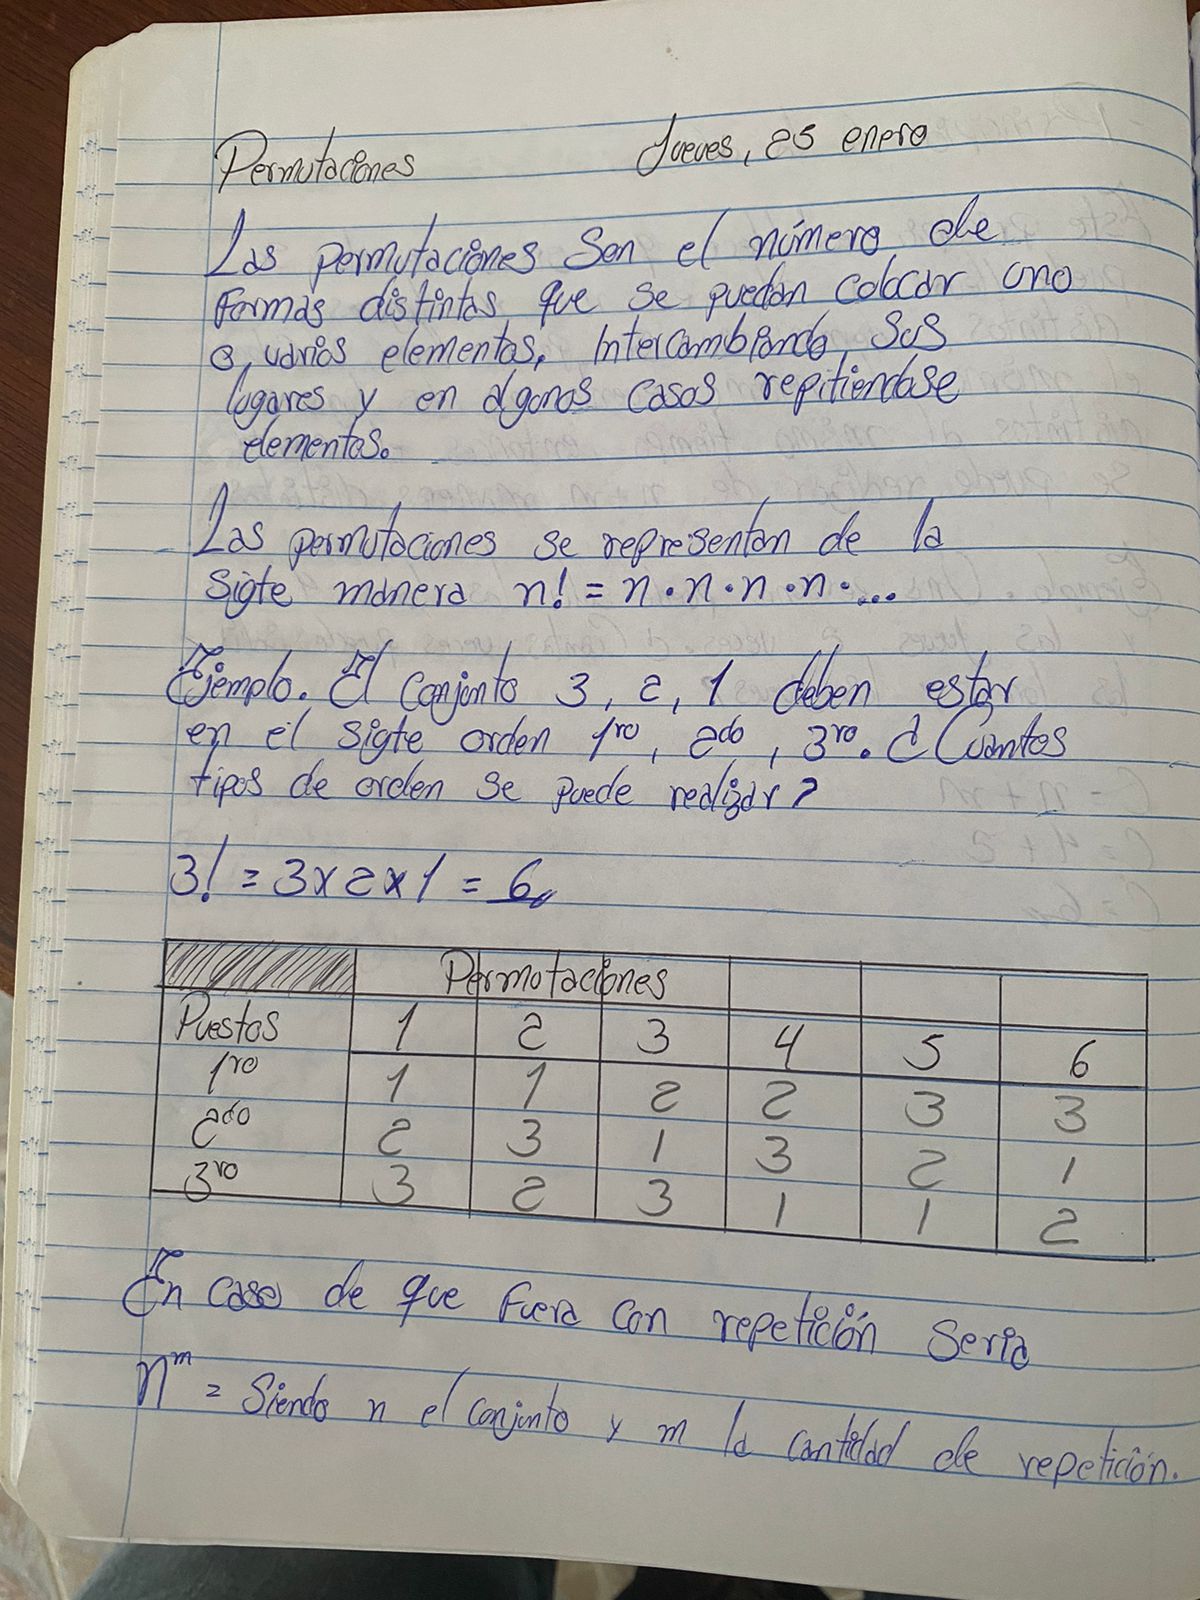 Permutaciones Jueves, 25 enero
Las permutaciones Son el número de
formas distintas que se puedan colocar uno
o varios elementos, Intercambiando, Sus
lugares y en algunos casos repitiendose
elementos.
Las permutaciones se representan de la
Sigte manera n! = n · n · n · n · ...
Ejemplo. El Conjunto 3, 2, 1 deben estar
en el sigte orden 1ro, 2do, 3ro. ¿Cuantos
tipos de orden se puede realizar?
3! = 3 x 2 x 1 = 6
Permutaciones
Puestos 1 2 3 4 5 6
1ro 1 1 2 2 3 3
2do 2 3 1 3 2 1
3ro 3 2 3 1 1 2
En caso de que fuera con repetición Seria
n^m = Siendo n el conjunto y m la cantidad de repetición.